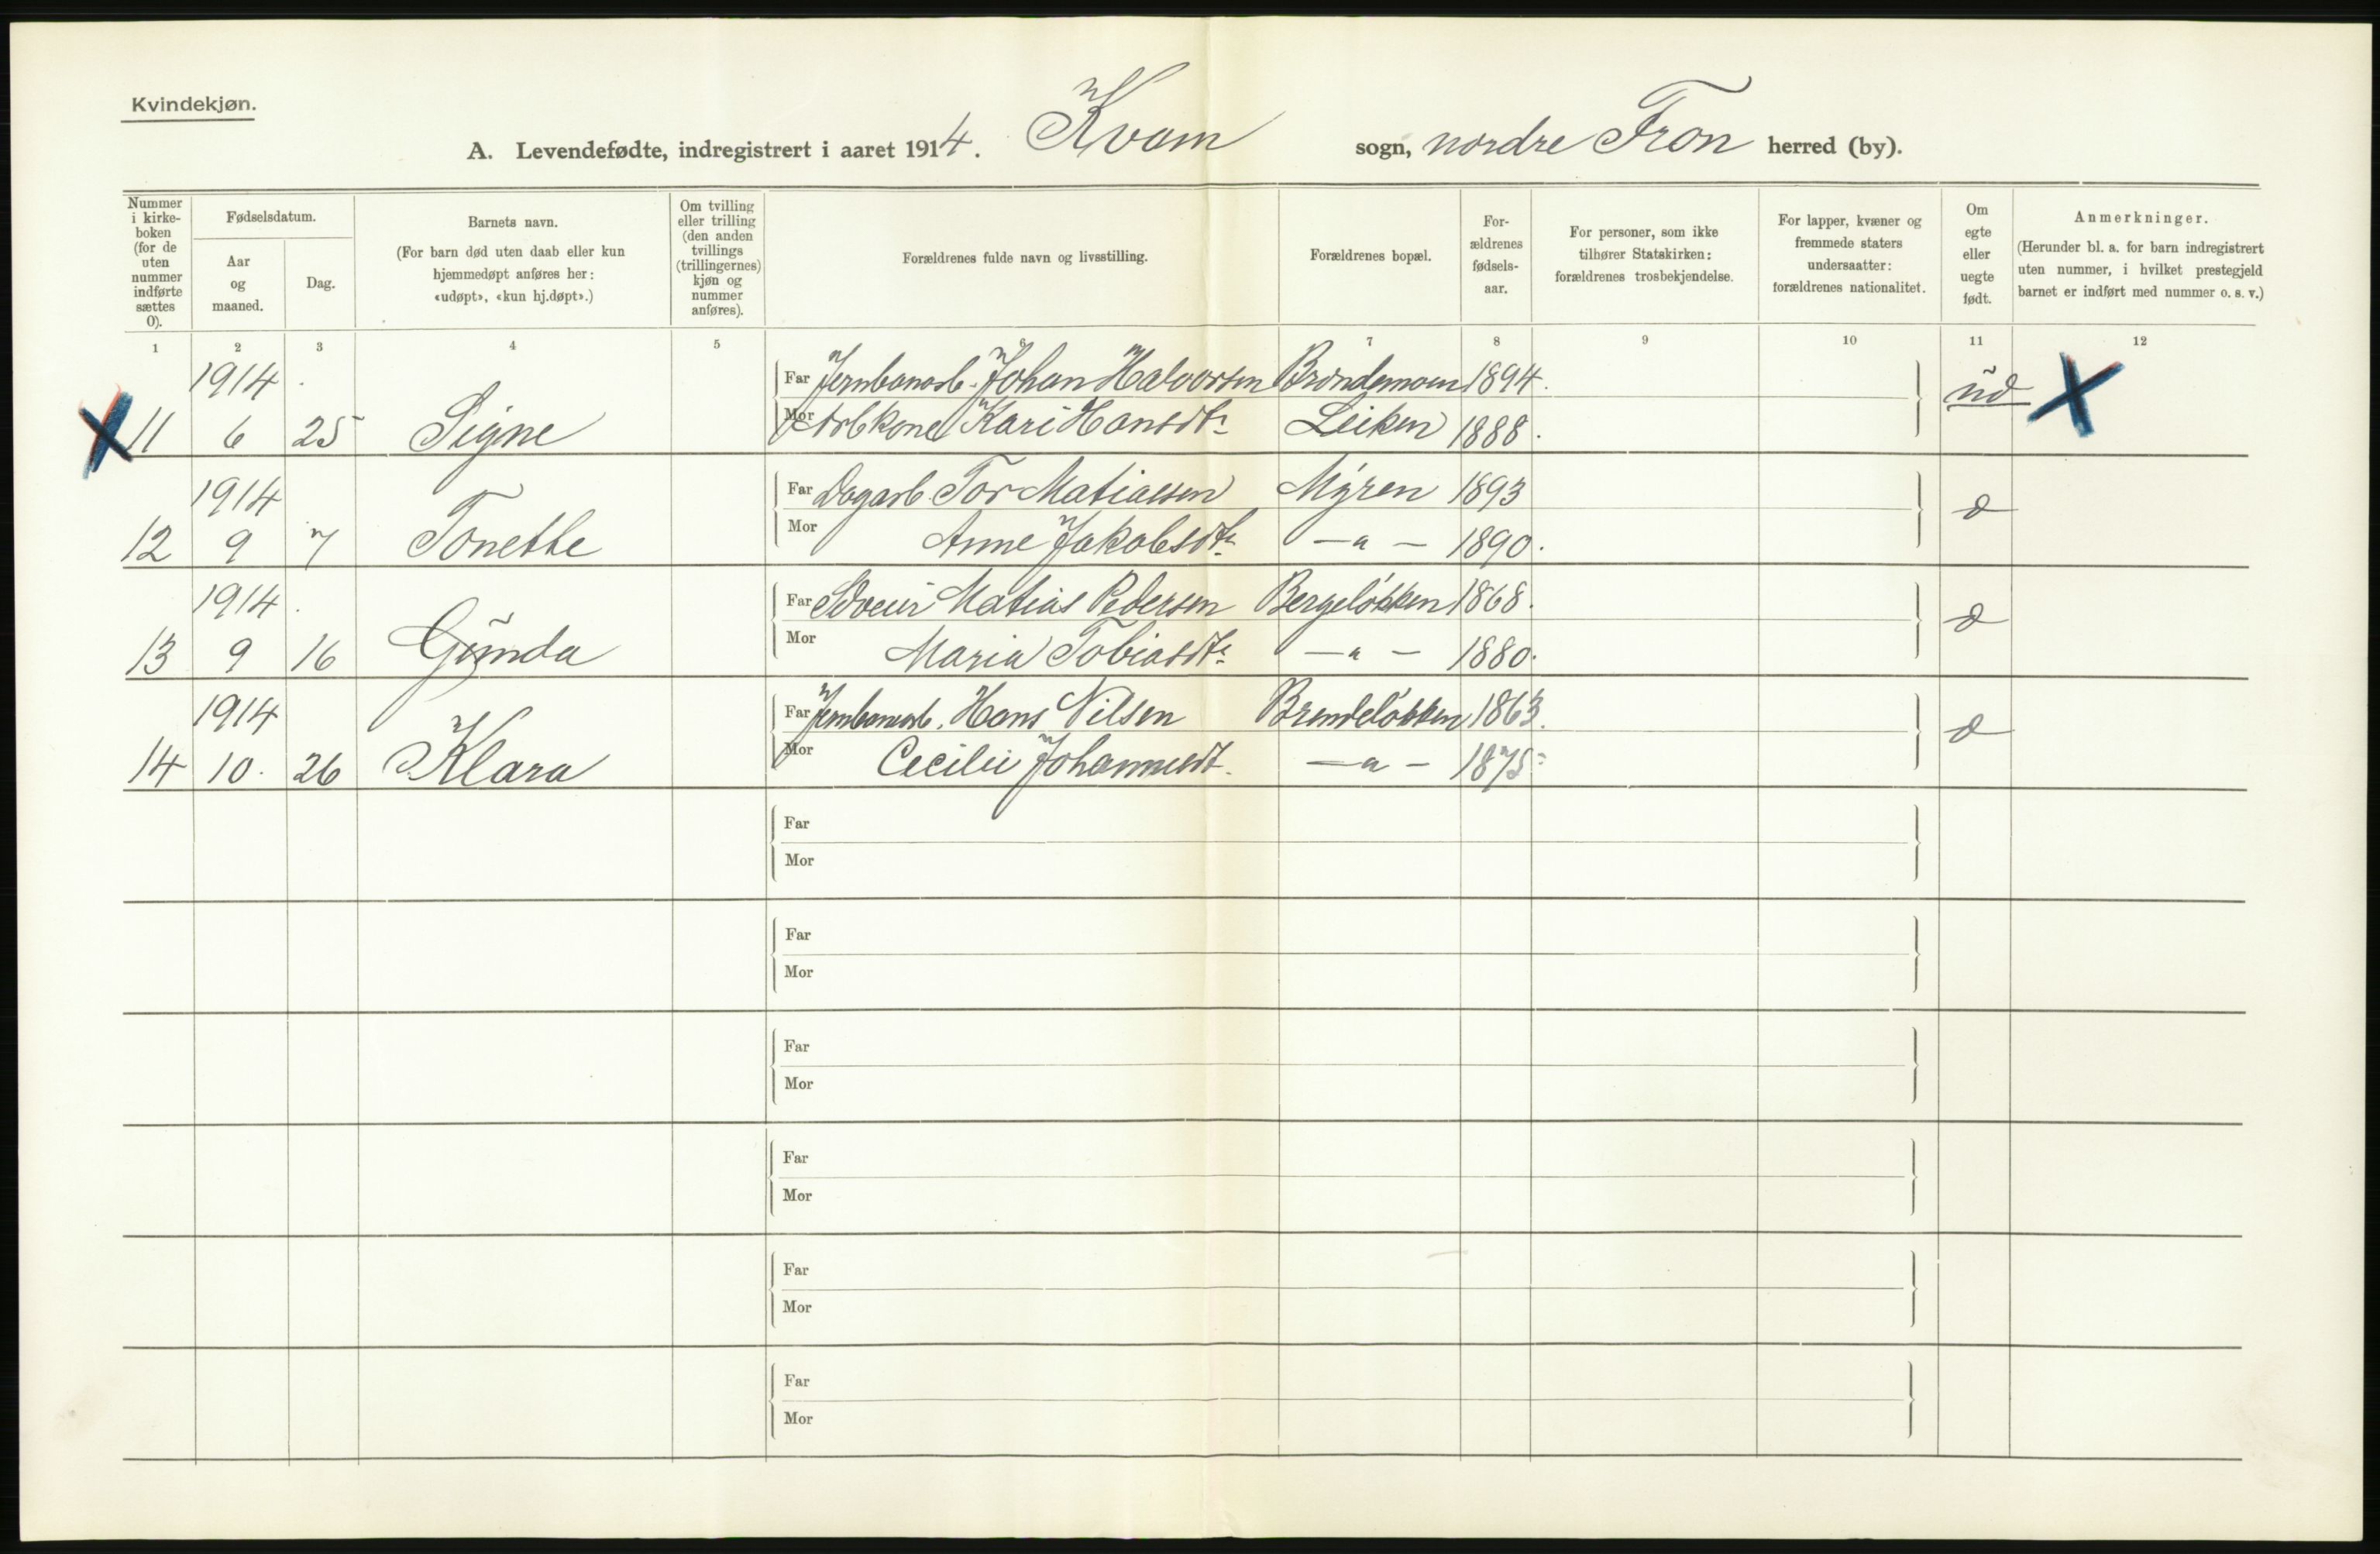 Kvindekjøn.
A. Levendefødte, indregistrert i aaret 1914. Kvam sogn, nordre Fron herred (by).
Nummer i kirke-boken (for de uten nummer indførte sættes 0).
Fødselsdatum.
Aar og maaned.
Dag.
Barnets navn.
(For barn død uten daab eller kun hjemmedøpt anføres her: «udøpt», «kun hj.døpt».)
Om tvilling eller trilling (den anden tvillings (trillingernes) kjøn og nummer anføres).
Forældrenes fulde navn og livsstilling.
Forældrenes bopæl.
For-ældrenes fødsels-aar.
For personer, som ikke tilhører Statskirken: forældrenes trosbekjendelse.
For lapper, kvæner og fremmede staters undersaatter: forældrenes nationalitet.
Om egte eller uegte født.
Anmerkninger.
(Herunder bl. a. for barn indregistrert uten nummer, i hvilket prestegjeld barnet er indført med nummer o. s. v.)
1 2 3 4 5 6 7 8 9 10 11 12
1914 Far Jernbanarb. Johan Halvorsen 1894.
11 6 25 Signe Mor Arbkone Kari Hansdtr Leiken 1888.
1914 Far Dagarb. Tor Matiassen Myren 1893
12 9 7 Tonette Mor Anne Jakobsdtr — " — 1890.
1914 Far Matias Pedersen Bergeløkken 1868.
13 9 16 Gunda Mor Maria Tobiasdtr — " — 1880.
1914 Far Jernbanearb. Hans Nilsen 1863.
14 10. 26 Klara Mor Cecilie Johannesdt. — " — 1875
Far
Mor
Far
Mor
Far
Mor
Far
Mor
Far
Mor
Far
Mor